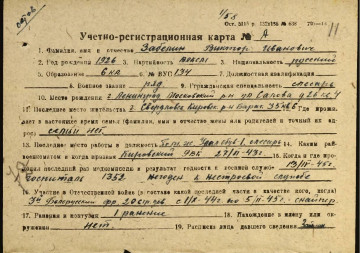 Учетно-регистрационная карта № А
1. Фамилия, имя и отчество Забелин Виктор Иванович
2. Год рождения 1926 3. Партийность влксм 4. Национальность русский
5. Образование 6 кл 6. № ВУС 134 7. Должностная квалификация
8. Воинское звание ряд 9. Гражданская специальность слесарь
10. Место рождения г. Ленинград Московский р-н
11. Последнее местожительства г. Свердловск Кировск. р-н
в настоящее время семья (фамилия, имя и отчество жены или родителей и точный их ад-
рес) семьи нет
13. Последнее место работы и должность слесарь 14. Каким рай-
военкоматом и когда призван Кировский РВК 27/XI-43 г. 16. Когда и где про-
ходил последний раз медкомиссию и результат годности к военной службе 13/III-45 г.
Госпиталь 1352 негоден к нестроевой службе
16. Участие в Отечественной войне (в составе какой последней части в качестве кого, когда)
3й Белорусский фр. с 1/II-44 г. по 5/II-45 г. - снайпер
17. Ранения и контузии 1 ранение 18. Нахождение в плену или ок-
ружении нет 19. Расписка лица давшего сведения